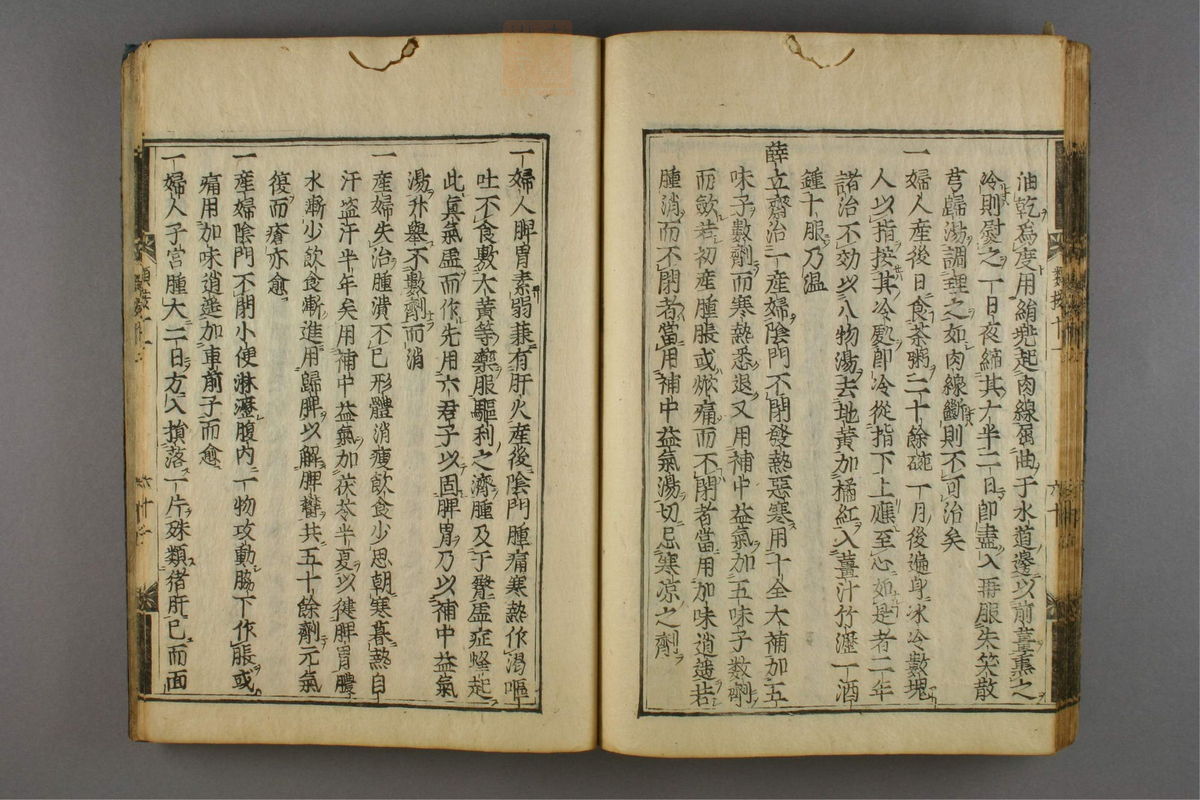 油乾為度用綃兜起肉線屈曲于水道邊以前薑熏之
冷則熨之一日夜縮其大半二日即盡入再服失笑散
芎歸湯調理之如肉線斷則不可治矣
一婦人産後日食茶粥二十餘碗一月後遍身冰冷數塊
人以指按其冷處即冷從指下上應至心如是者二年
諸治不効以八物湯去地黄加橘紅入薑汁竹瀝一酒
鍾十服乃温
薛立齋治一産婦陰門不閉發熱惡寒用十全大補加五
味子數劑而寒熱悉退又用補中益氣加五味子数劑
而斂若初産腫脹或焮痛而不閉者當用加味逍遥若
腫消而不閉者當用補中益氣湯切忌寒凉之劑
一婦人脾胃素弱兼有肝火産後陰門腫痛寒熱作渇嘔
吐不食敷大黄等藥服驅利之濟腫及于臀虚症蜂起
此真氣虚而作先用六君子以固脾胃乃以補中益氣
湯升舉不數劑而消
一産婦失治腫潰不已形體消瘦飲食少思朝寒暮熱自
汗盗汗半年矣用補中益氣加茯苓半夏以健脾胃膿
水漸少飲食漸進用歸脾以解脾欝共五十餘劑元氣
復而瘡亦愈
一産婦陰門不閉小便淋瀝腹内一物攻動脇下作脹或
痛用加味逍遥加車前子而愈
一婦人子宫腫大二日方入損落一片殊類猪肝已而面
類抜十一
六十